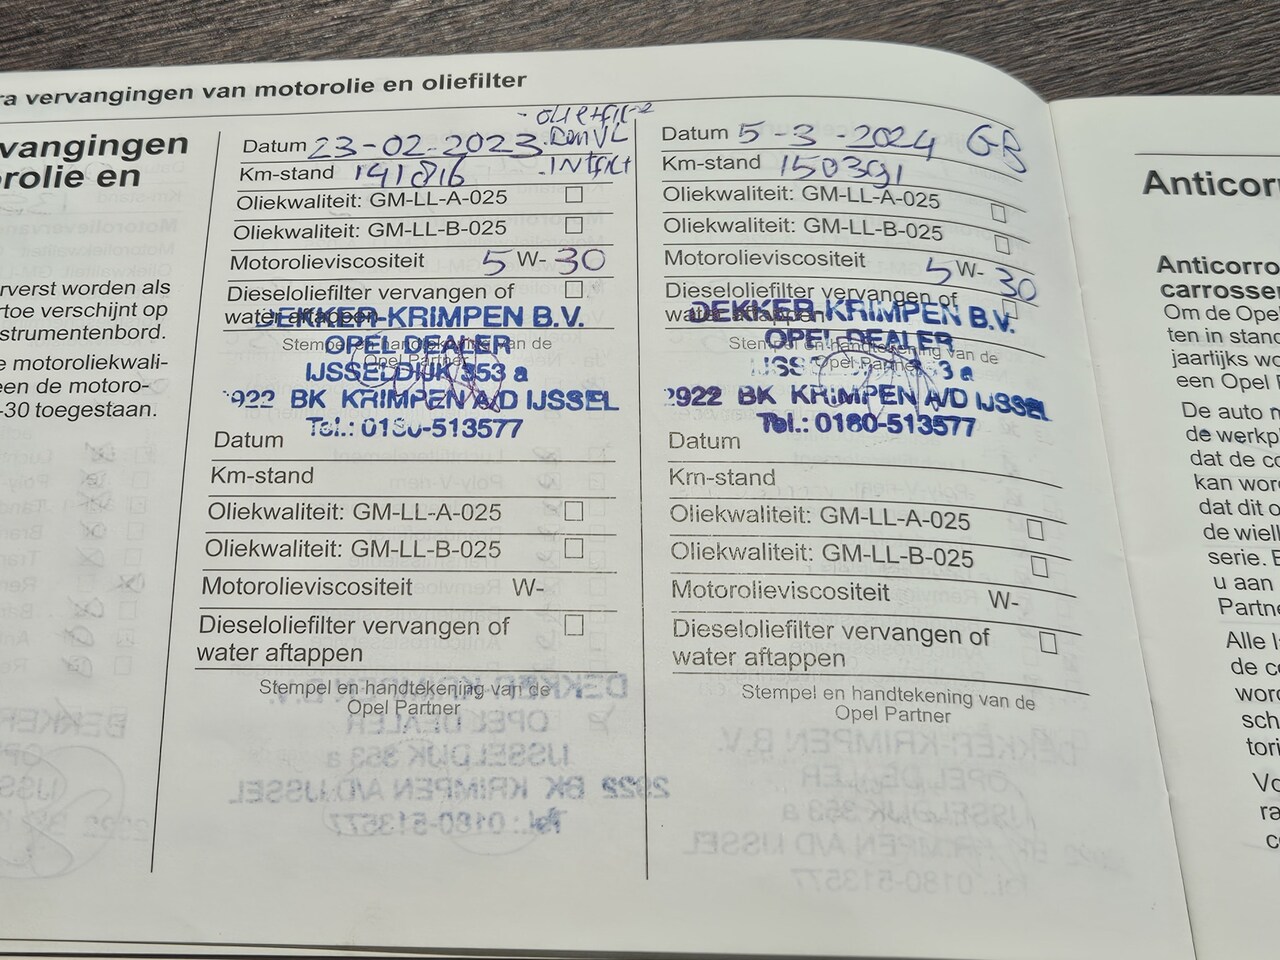 ra vervangingen van motorolie en oliefilter
vangingen
orolie en
rverst worden als
rtoe verschijnt op
strumentenbord.
e motoroliekwali-
een de motoro-
-30 toegestaan.
Datum 23-02-2023
Km-stand 141816
Oliekwaliteit: GM-LL-A-025
Oliekwaliteit: GM-LL-B-025
Motorolieviscositeit 5 W- 30
Dieseloliefilter vervangen of
water aftappen
DEKKER-KRIMPEN B.V.
Stempel en handtekening van de
OPEL DEALER
Opel Partner
IJSSELDIJK 353 a
2922 BK KRIMPEN A/D IJSSEL
Tel.: 0180-513577
Datum
Km-stand
Oliekwaliteit: GM-LL-A-025
Oliekwaliteit: GM-LL-B-025
Motorolieviscositeit W-
Dieseloliefilter vervangen of
water aftappen
Stempel en handtekening van de
Opel Partner
Datum 5-3-2024 GB
Km-stand 150391
Oliekwaliteit: GM-LL-A-025
Oliekwaliteit: GM-LL-B-025
Motorolieviscositeit 5 W- 30
Dieseloliefilter vervangen of
water aftappen
DEKKER-KRIMPEN B.V.
Stempel en handtekening van de
OPEL DEALER
Opel Partner
2922 BK KRIMPEN A/D IJSSEL
Tel.: 0180-513577
Datum
Km-stand
Oliekwaliteit: GM-LL-A-025
Oliekwaliteit: GM-LL-B-025
Motorolieviscositeit W-
Dieseloliefilter vervangen of
water aftappen
Stempel en handtekening van de
Opel Partner
Anticor
Anticorro
carrosser
Om de Opel
ten in stand
jaarlijks wo
een Opel P
De auto m
de werkpl
dat de co
kan word
dat dit o
de wiell
serie. E
u aan
Partne
Alle l
de co
word
sch
tori
Vo
ra
co